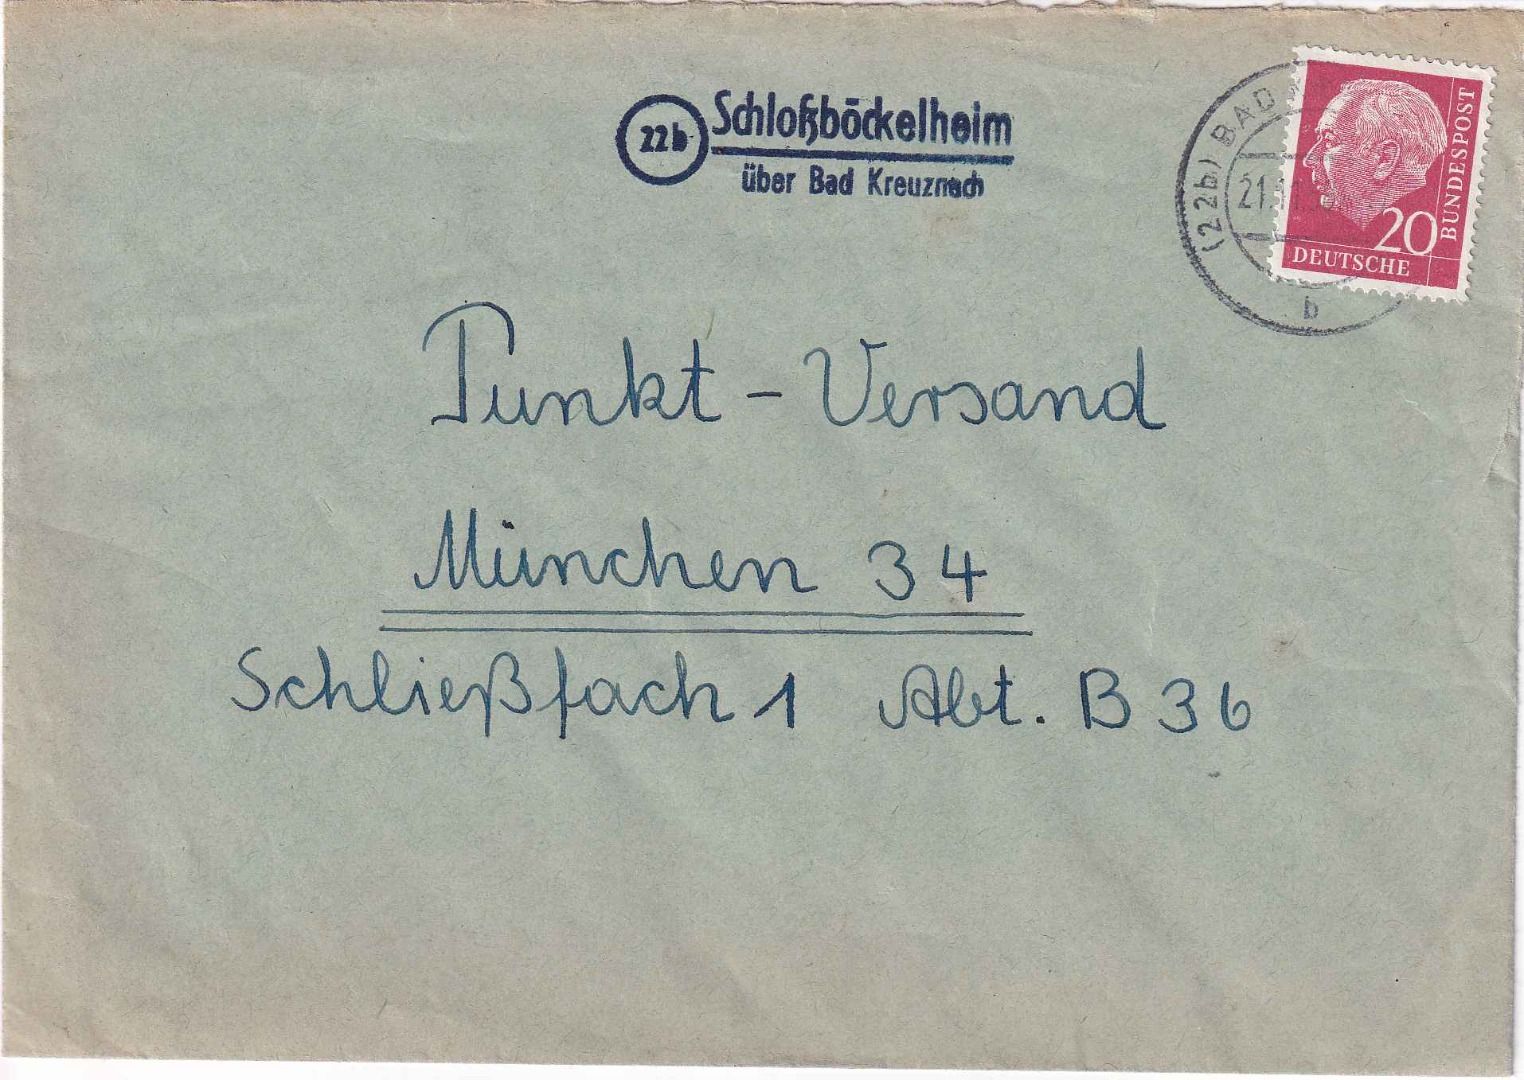 22b Schloßböckelheim
über Bad Kreuznach
(22b) BAD
21.
b
20
DEUTSCHE
BUNDESPOST
Punkt - Versand
München 34
Schließfach 1 Abt. B 36